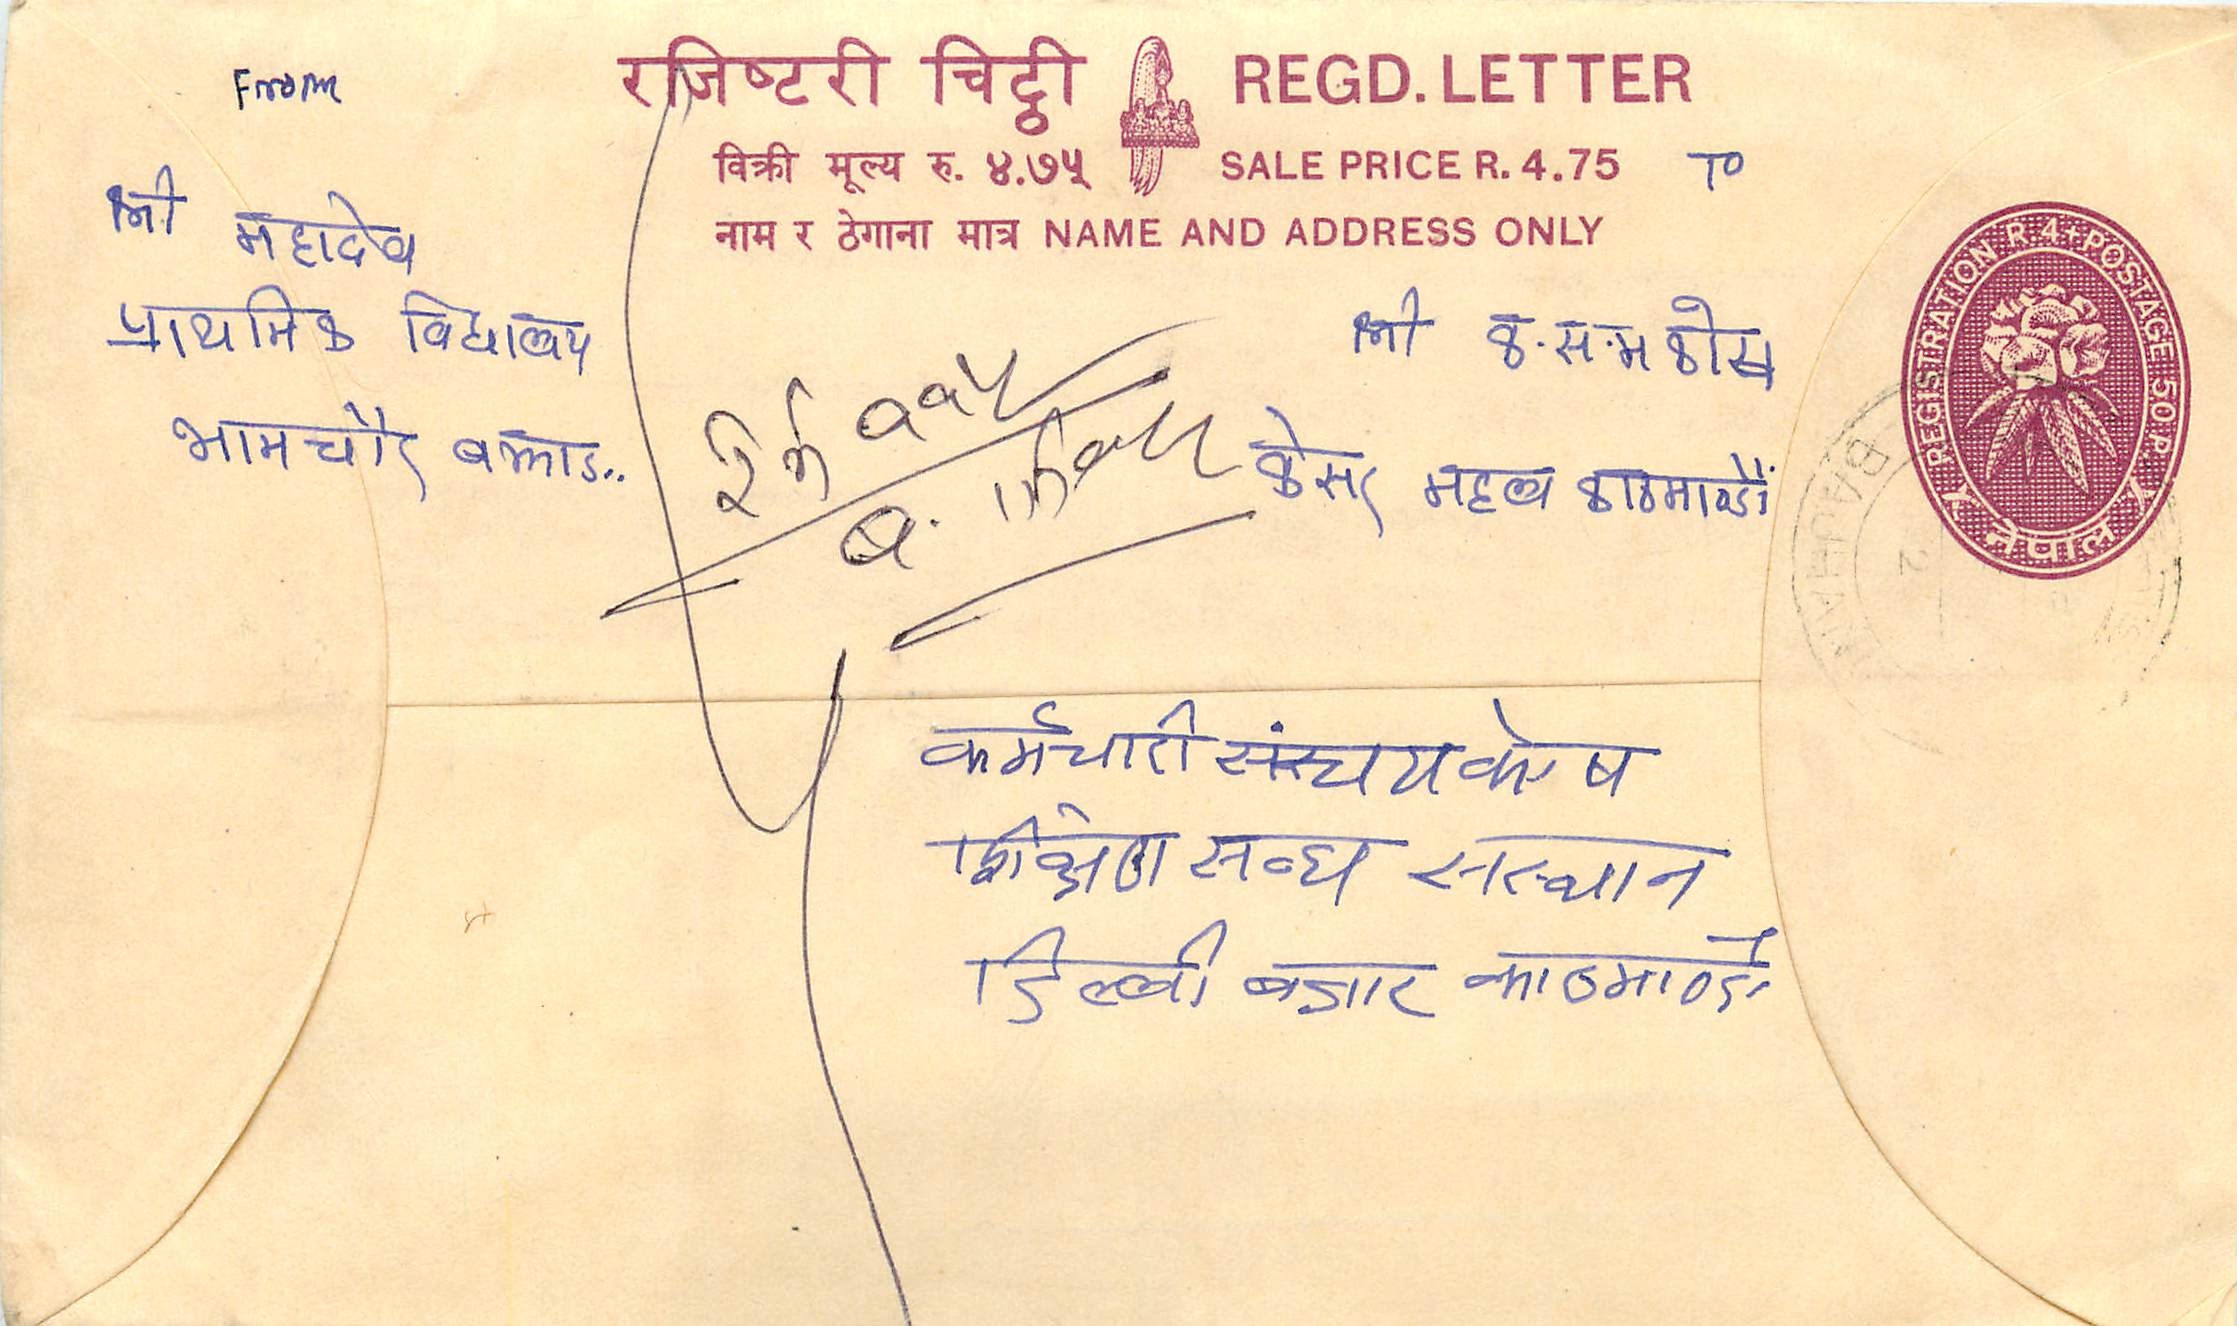 रजिष्टरी चिट्ठी REGD. LETTER
विक्री मूल्य रु. ४.७५ SALE PRICE R. 4.75
नाम र ठेगाना मात्र NAME AND ADDRESS ONLY
From
श्री महादेव
प्राथमिक विद्यालय
भामचौर बझाङ..
To
श्री क.स.म कोस
केसर महल काठमाण्डौं
कर्मचारी संचयकोष
संस्थान
डिल्ली बजार काठमाण्डौ
REGISTRATION R. 4+POSTAGE 50 P.
नेपाल